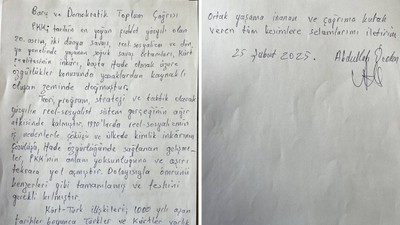 Barış ve Demokratik Toplum Çağrısı
PKK; tarihin en yoğun şiddet yüzyılı olan
20. asrın, iki dünya savaşı, reel-sosyalizm ve dün-
ya genelinde yaşanan soğuk savaş ortamları, Kürt
realitesinin inkârı, başta ifade olmak üzere
özgürlükler konusunda yasaklardan kaynaklı
oluşan zeminde doğmuştur.
Teori, program, strateji ve taktik olarak
yüzyılın reel-sosyalist sistem gerçeğinin ağır
etkisinde kalmıştır. 1990'larda reel-sosyalizmin
iç nedenlerle çöküşü ve ülkede kimlik inkârının
çözülüşü, ifade özgürlüğünde sağlanan gelişme-
ler, PKK'nin anlam yoksunluğuna ve aşırı
tekrara yol açmıştır. Dolayısıyla ömrünü
benzerleri gibi tamamlamış ve feshini
gerekli kılmıştır.
Kürt-Türk ilişkileri; 1000 yılı aşan
tarihler boyunca Türkler ve Kürtler varlık
Ortak yaşama inanan ve çağrıma kulak
veren tüm kesimlere selamlarımı iletirim
25 Şubat 2025. Abdullah Öcalan